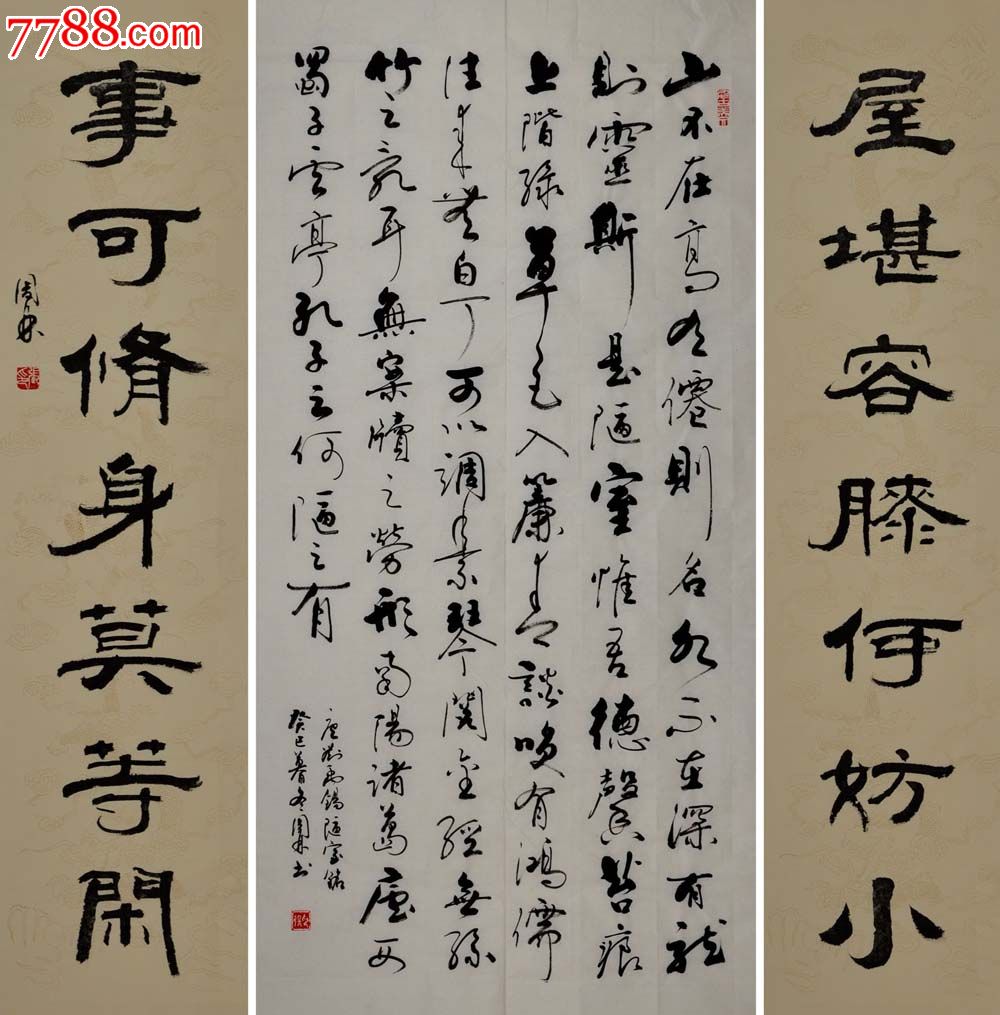 7788.com
屋堪容膝何妨小
山不在高有僊則名水不在深有龍
則靈斯是陋室惟吾德馨苔痕
上階綠草色入簾青談笑有鴻儒
往來無白丁可以調素琴閱金經無絲
竹之亂耳無案牘之勞形南陽諸葛廬西
蜀子云亭孔子云何陋之有
唐劉禹錫陋室銘
癸巳暮冬周林书
事可脩身莫等閑
周林